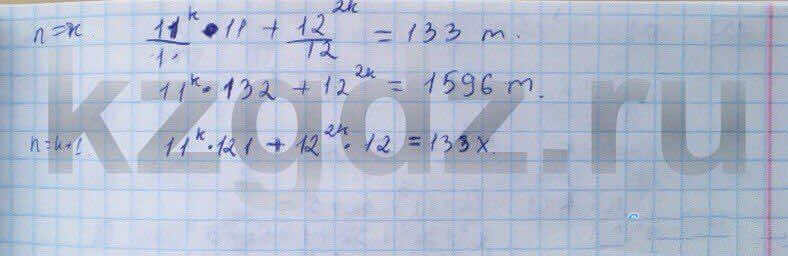 n=k 11^k/1 • 11 + 12^{2k}/12 = 133 m.
11^k • 132 + 12^{2k} = 1596 m.
n=k+1 11^k • 121 + 12^{2k} • 12 = 133 x.
kzgdz.ru